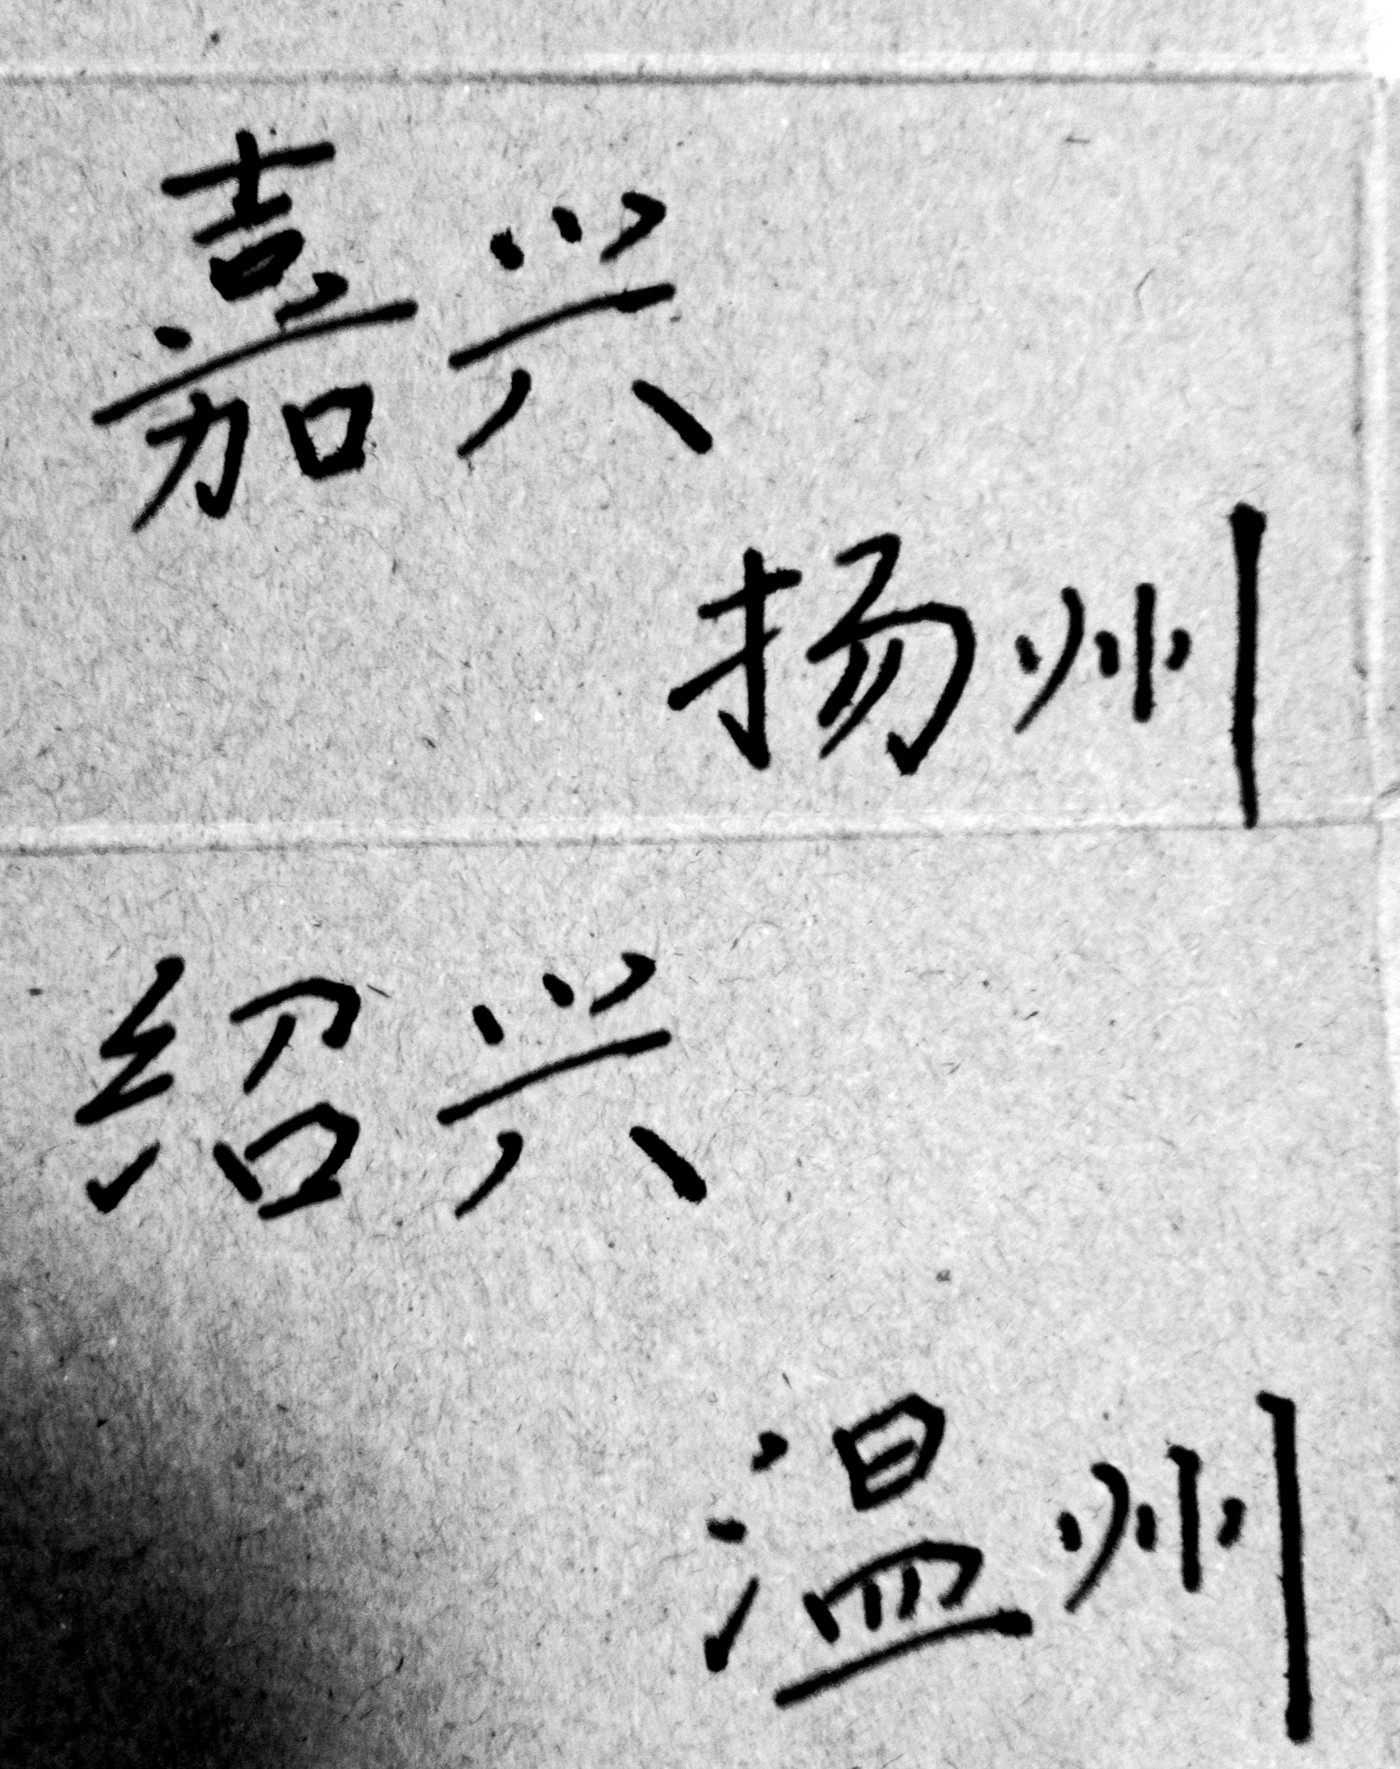 嘉兴
扬州
绍兴
温州